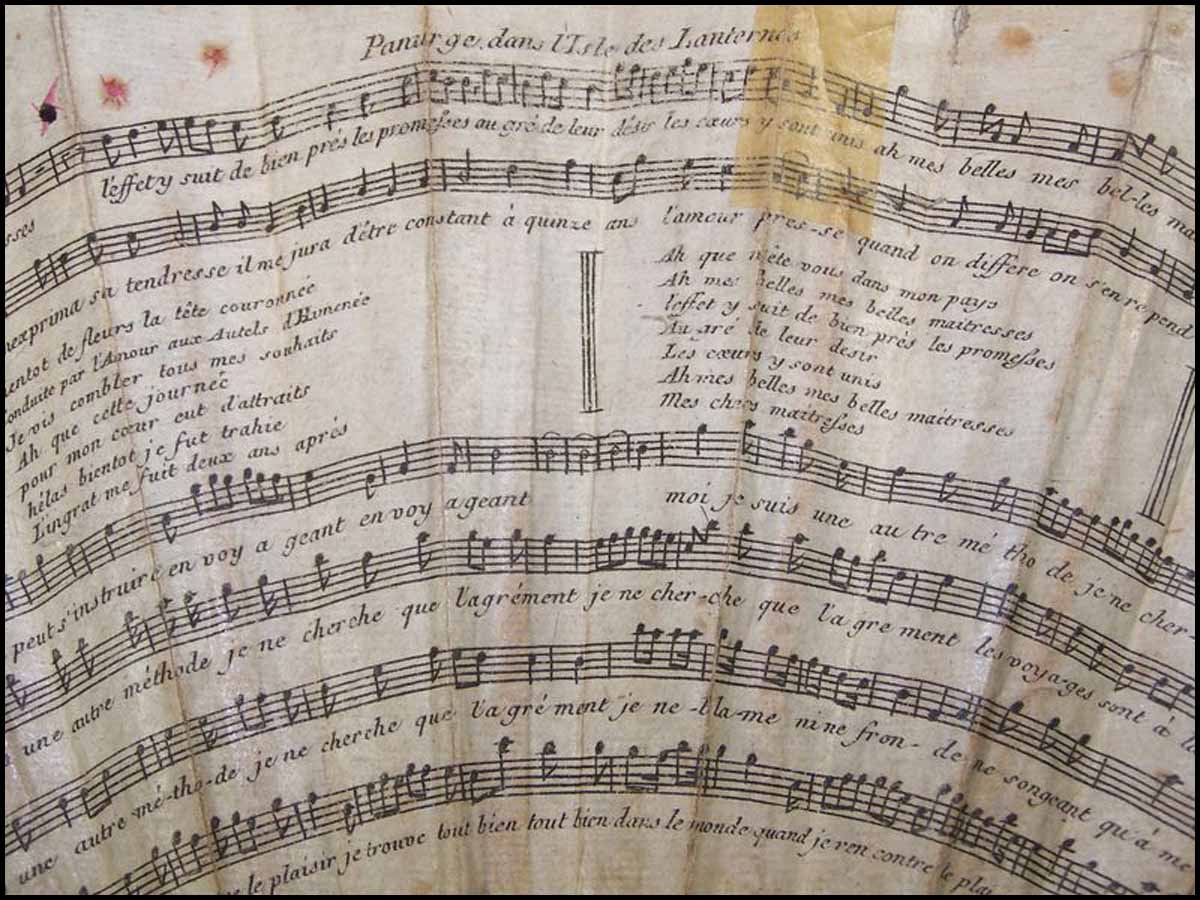 Panurge dans l'Isle des Lanternes
l'effet y suit de bien prés les promesses au gré de leur désir les cœurs y sont unis ah mes belles mes bel-les ma
sses
exprima sa tendresse il me jura d'être constant à quinze ans l'amour pres-se quand on differe on s'en repend
entot de fleurs la tête couronnée
onduite par l'Amour aux Autels d'Himenée
Je vis combler tous mes souhaits
Ah que cette journée
pour mon cœur eut d'attraits
hélas bientot je fut trahie
L'ingrat me fuit deux ans aprés
Ah que n'éte vous dans mon pays
Ah mes belles mes belles maitresses
l'effet y suit de bien prés les promesses
Au gré de leur desir
Les cœurs y sont unis
Ah mes belles mes belles maitresses
Mes cheres maitresses
peut s'instruire en voy a geant en voy a geant moi je suis une au tre mé tho de je ne cher-
une autre méthode je ne cherche que l'agrément je ne cher-che que l'a gre ment les voya-ges sont à
une autre mé-tho-de je ne cherche que l'a gré ment je ne bla-me ni ne fron-de ne songeant qu'à me
le plaisir je trouve tout bien tout bien dans le monde quand je ren contre le plai